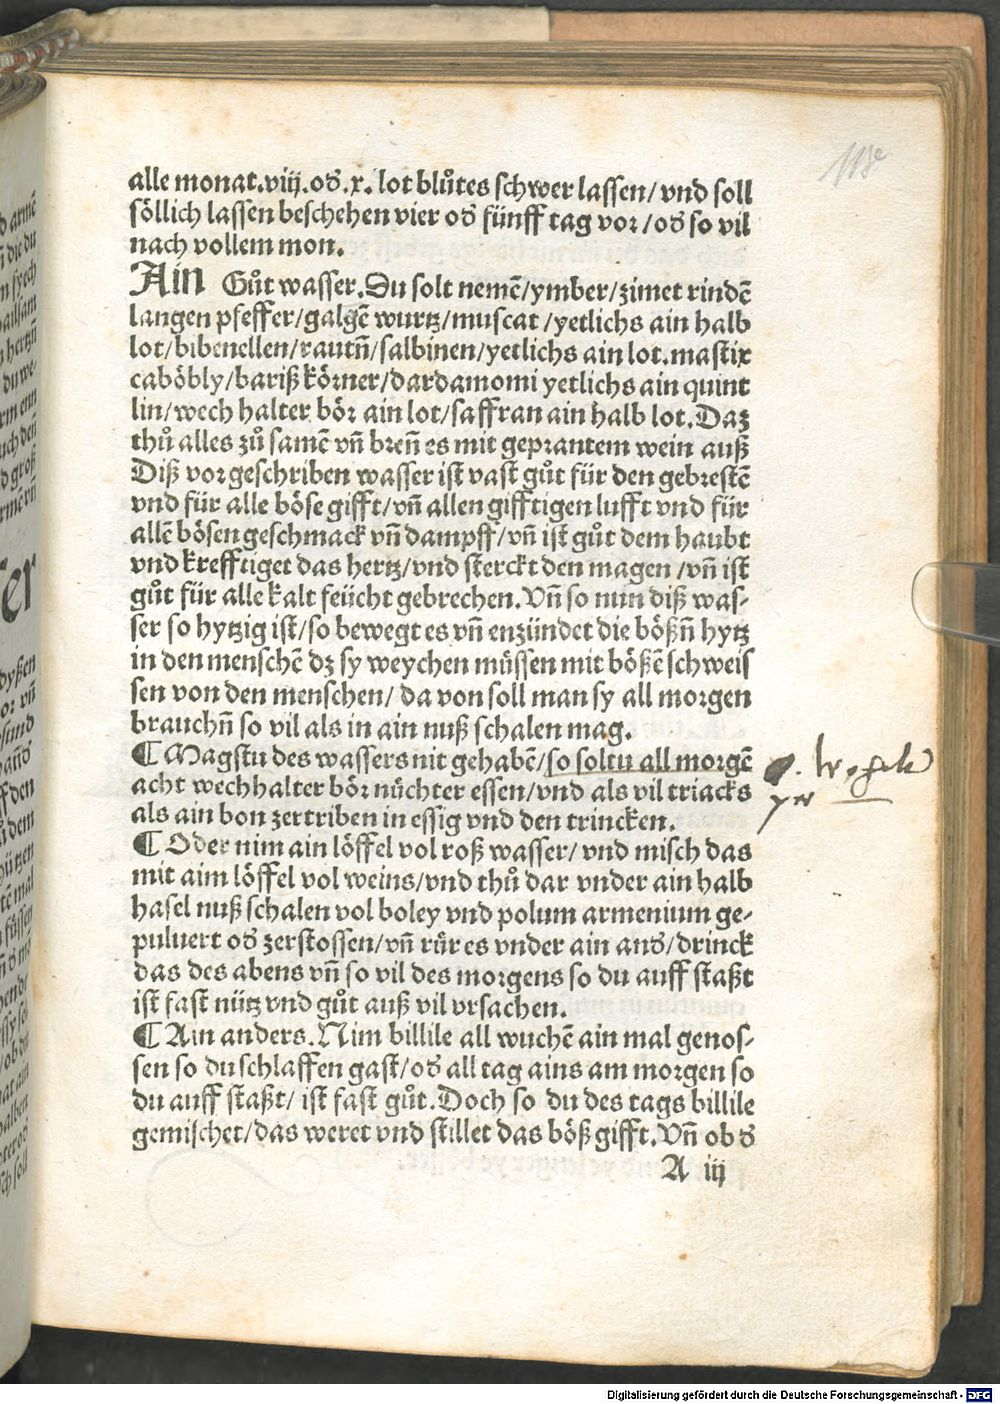 alle monat.viij.oð.x.lot blůtes schwer lassen/vnd soll
söllich lassen beschehen vier oð fünff tag vor/oð so vil
nach vollem mon.
Ain Gůt wasser.Du solt nemē/ymber/zimet rindē
langen pfeffer/galgē wurtz/muscat/yetlichs ain halb
lot/bibenellen/rautn̄/salbinen/yetlichs ain lot.mastix
caböbly/bariß körner/dardamomi yetlichs ain quint
lin/wech halter bör ain lot/saffran ain halb lot.Daz
thů alles zů samē vn̄ bren̄ es mit geprantem wein auß
Diß vorgeschriben wasser ist vast gůt für den gebrestē
vnd für alle böse gifft/vn̄ allen gifftigen lufft vnd für
allē bösen geschmack vn̄ dampff/vn̄ ist gůt dem haubt
vnd krefftiget das hertz/vnd sterckt den magen/vn̄ ist
gůt für alle kalt feücht gebrechen.Vn̄ so nun diß was-
ser so hytzig ist/so bewegt es vn̄ enzündet die bößn̄ hytz
in den menschē dz sy weychen müssen mit bößē schweis
sen von den menschen/da von soll man sy all morgen
brauchn̄ so vil als in ain nuß schalen mag.
¶ Magstu des wassers nit gehabē/so soltu all morgē
acht wechhalter bör nüchter essen/vnd als vil triacks
als ain bon zertriben in essig vnd den trincken.
¶ Oder nim ain löffel vol roß wasser/vnd misch das
mit aim löffel vol weins/vnd thů dar vnder ain halb
hasel nuß schalen vol boley vnd polum armenium ge-
puluert oð zerstossen/vn̄ rür es vnder ain anð/drinck
das des abens vn̄ so vil des morgens so du auff staßt
ist fast nütz vnd gůt auß vil vrsachen.
¶ Ain anders.Nim billile all wuchē ain mal genos-
sen so du schlaffen gast/oð all tag ains am morgen so
du auff staßt/ist fast gůt.Doch so du des tags billile
gemischet/das weret vnd stillet das böß gifft.Vn̄ ob ð
A iij
Digitalisierung gefördert durch die Deutsche Forschungsgemeinschaft - DFG